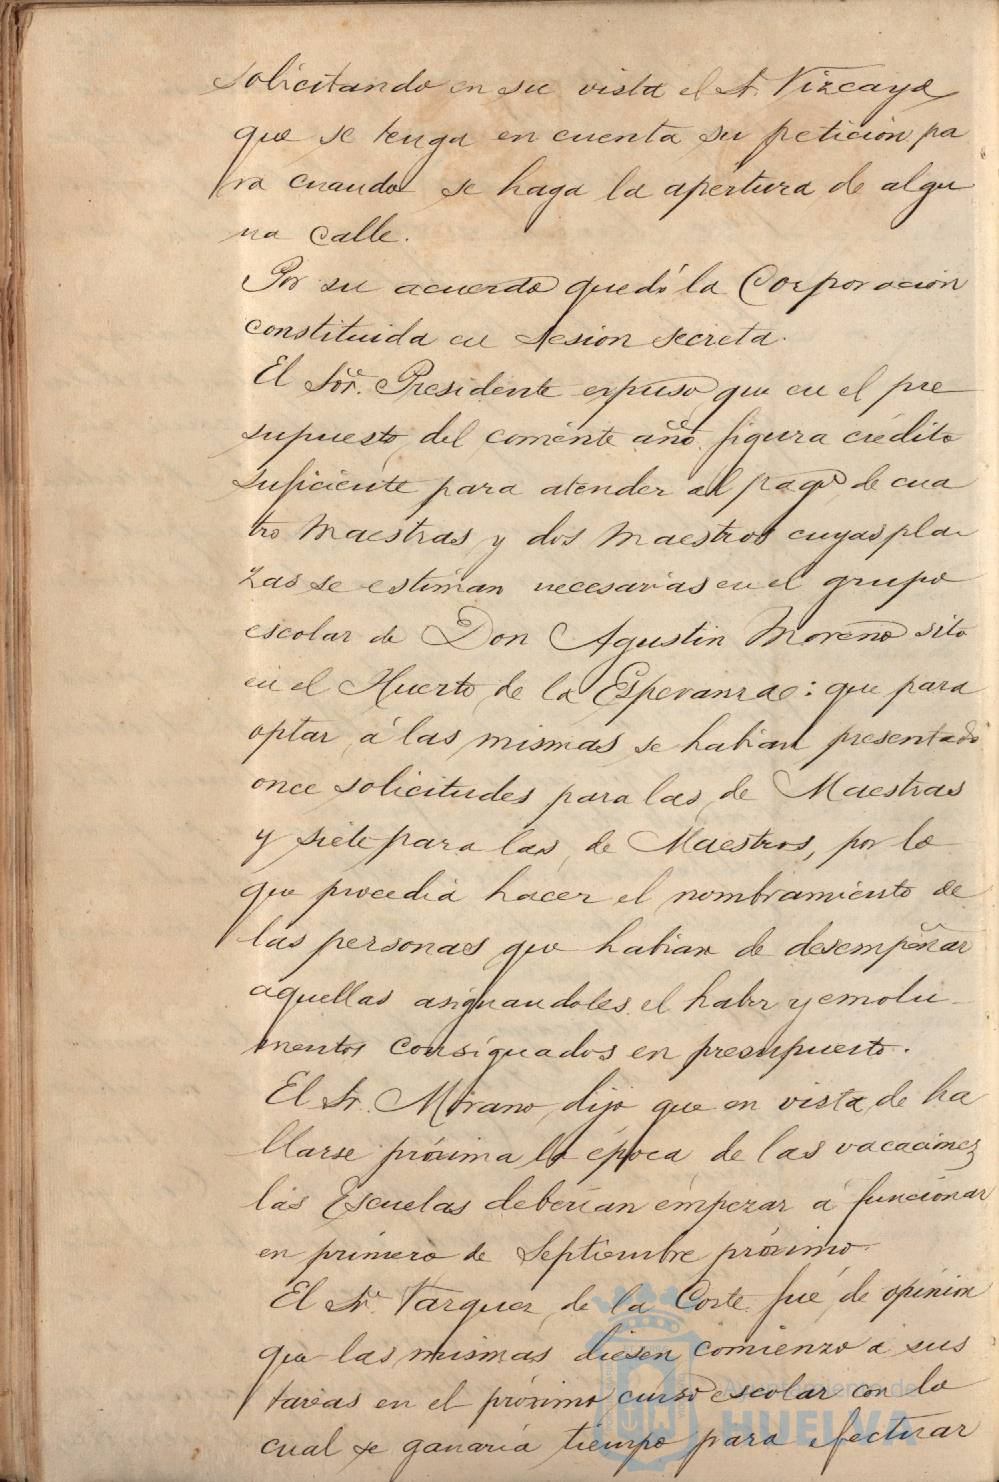 solicitando en su vista el Sr. Vizcaya
que se tenga en cuenta su petición pa
ra cuando se haga la apertura de algu
na calle.
Por su acuerdo quedó la Corporación
constituida en sesion secreta.
El Sor. Presidente expuso que en el pre
supuesto del corriente año figura crédito
suficiente para atender al pago de cua
tro Maestras y dos Maestros cuyas pla
zas se estiman necesarias en el grupo
escolar de Don Agustin Moreno sito
en el Huerto de la Esperanza: que para
optar á las mismas se habian presentado
once solicitudes para las de Maestras
y siete para las de Maestros, por lo
que procedia hacer el nombramiento de
las personas que habian de desempeñar
aquellas asignandoles el haber y emolu-
mentos consignados en presupuesto.
El Sr. Morano dijo que en vista de ha
llarse próxima la época de las vacaciones
las Escuelas deberían empezar á funcionar
en primero de Septiembre próximo.
El Sr. Vazquez de la Corte fué de opinion
que las mismas diesen comienzo á sus
tareas en el próximo curso escolar con lo
cual se ganaría tiempo para efectuar
Ayuntamiento de
HUELVA